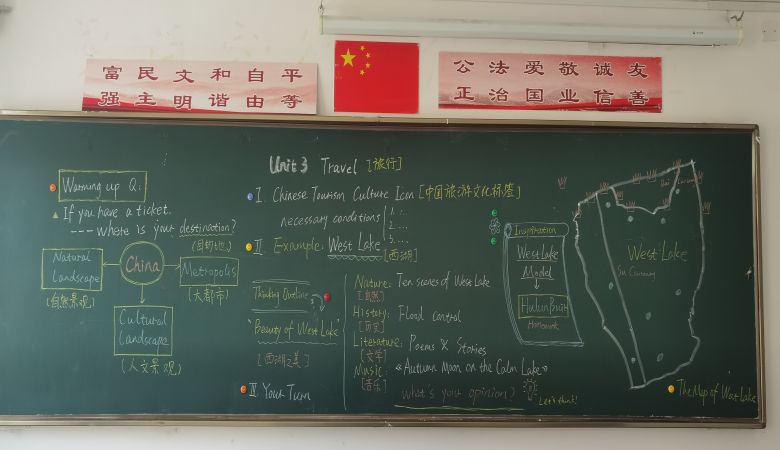 富民文和自平
强主明谐由等
公法爱敬诚友
正治国业信善
Unit 3 Travel [旅行]
Warming up Q:
If you have a ticket.
--- where is your destination?
(目的地)
Natural Landscape
(自然景观)
China
Metropolis
(大都市)
Cultural Landscape
(人文景观)
I. Chinese Tourism Culture Icon [中国旅游文化标签]
necessary conditions
1. ...
2. ...
3. ...
II Example: West Lake
[西湖]
Thinking Outline
"Beauty of West Lake"
[西湖之美]
Nature: Ten scenes of West Lake
[自然]
History: Flood control
[历史]
Literature: Poems & Stories
[文学]
Music: 《Autumn Moon on the Calm Lake》
[音乐]
what's your opinion?
Let's think!
Your Turn
Inspiration
West Lake
Model
Hulun Buir
Homework
West Lake
Su Causeway
Bai Causeway
The Map of West Lake